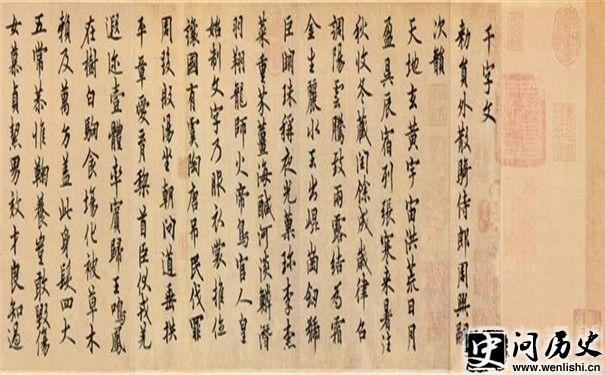 千字文
勑員外散騎侍郎周興嗣
次韻
天地玄黃宇宙洪荒日月
盈昃辰宿列張寒來暑往
秋收冬藏閏餘成歲律召
調陽雲騰致雨露結為霜
金生麗水玉出崐崗釰號
巨闕珠稱夜光菓珍李柰
菜重芥薑海鹹河淡鱗潛
羽翔龍師火帝鳥官人皇
始制文字乃服衣裳推位
讓國有虞陶唐弔民伐罪
周發殷湯坐朝問道垂拱
平章愛育黎首臣伏戎羌
遐邇壹體率賓歸王鳴鳳
在樹白駒食場化被草木
賴及萬方蓋此身髮四大
五常恭惟鞠養豈敢毀傷
女慕貞絜男效才良知過
史 问历史
www.wenlishi.cn